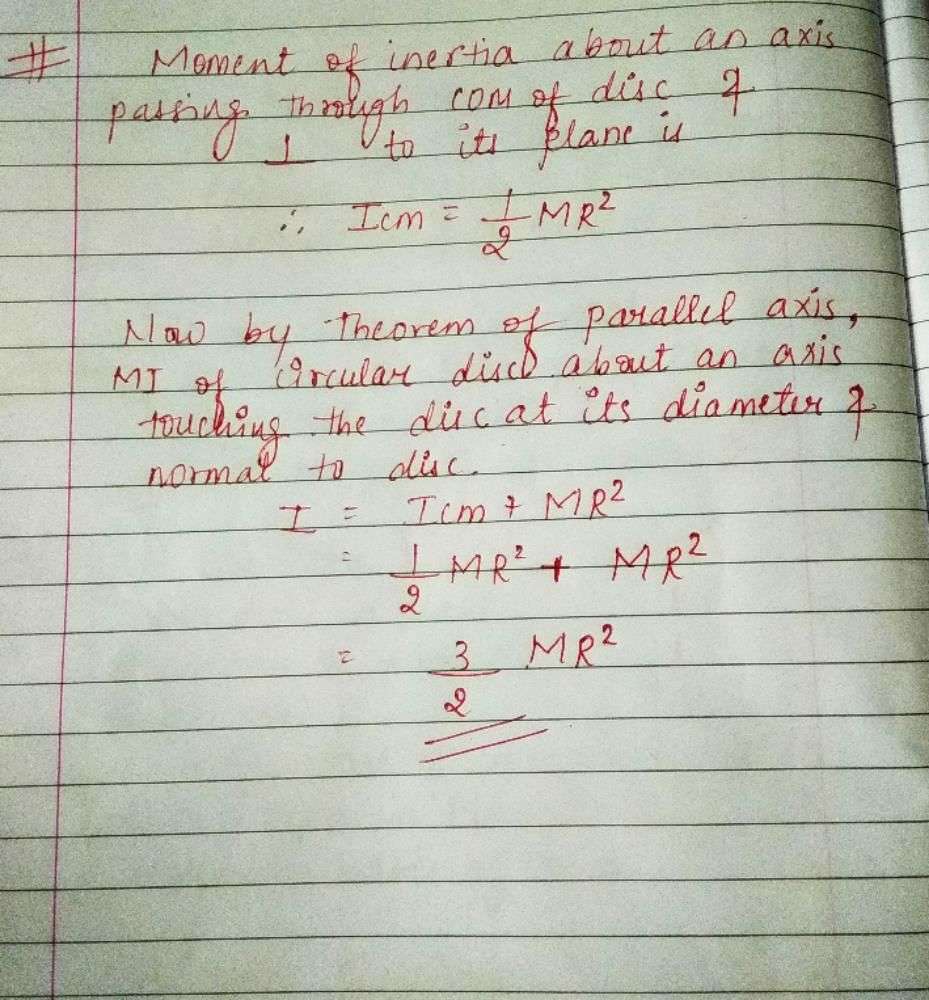 # Moment of inertia about an axis
passing through COM of disc &
⊥ to its plane is
∴ Icm = 1/2 MR²
Now by Theorem of parallel axis,
MI of Circular disc about an axis
touching the disc at its diameter &
normal to disc.
I = Icm + MR²
= 1/2 MR² + MR²
= 3/2 MR²